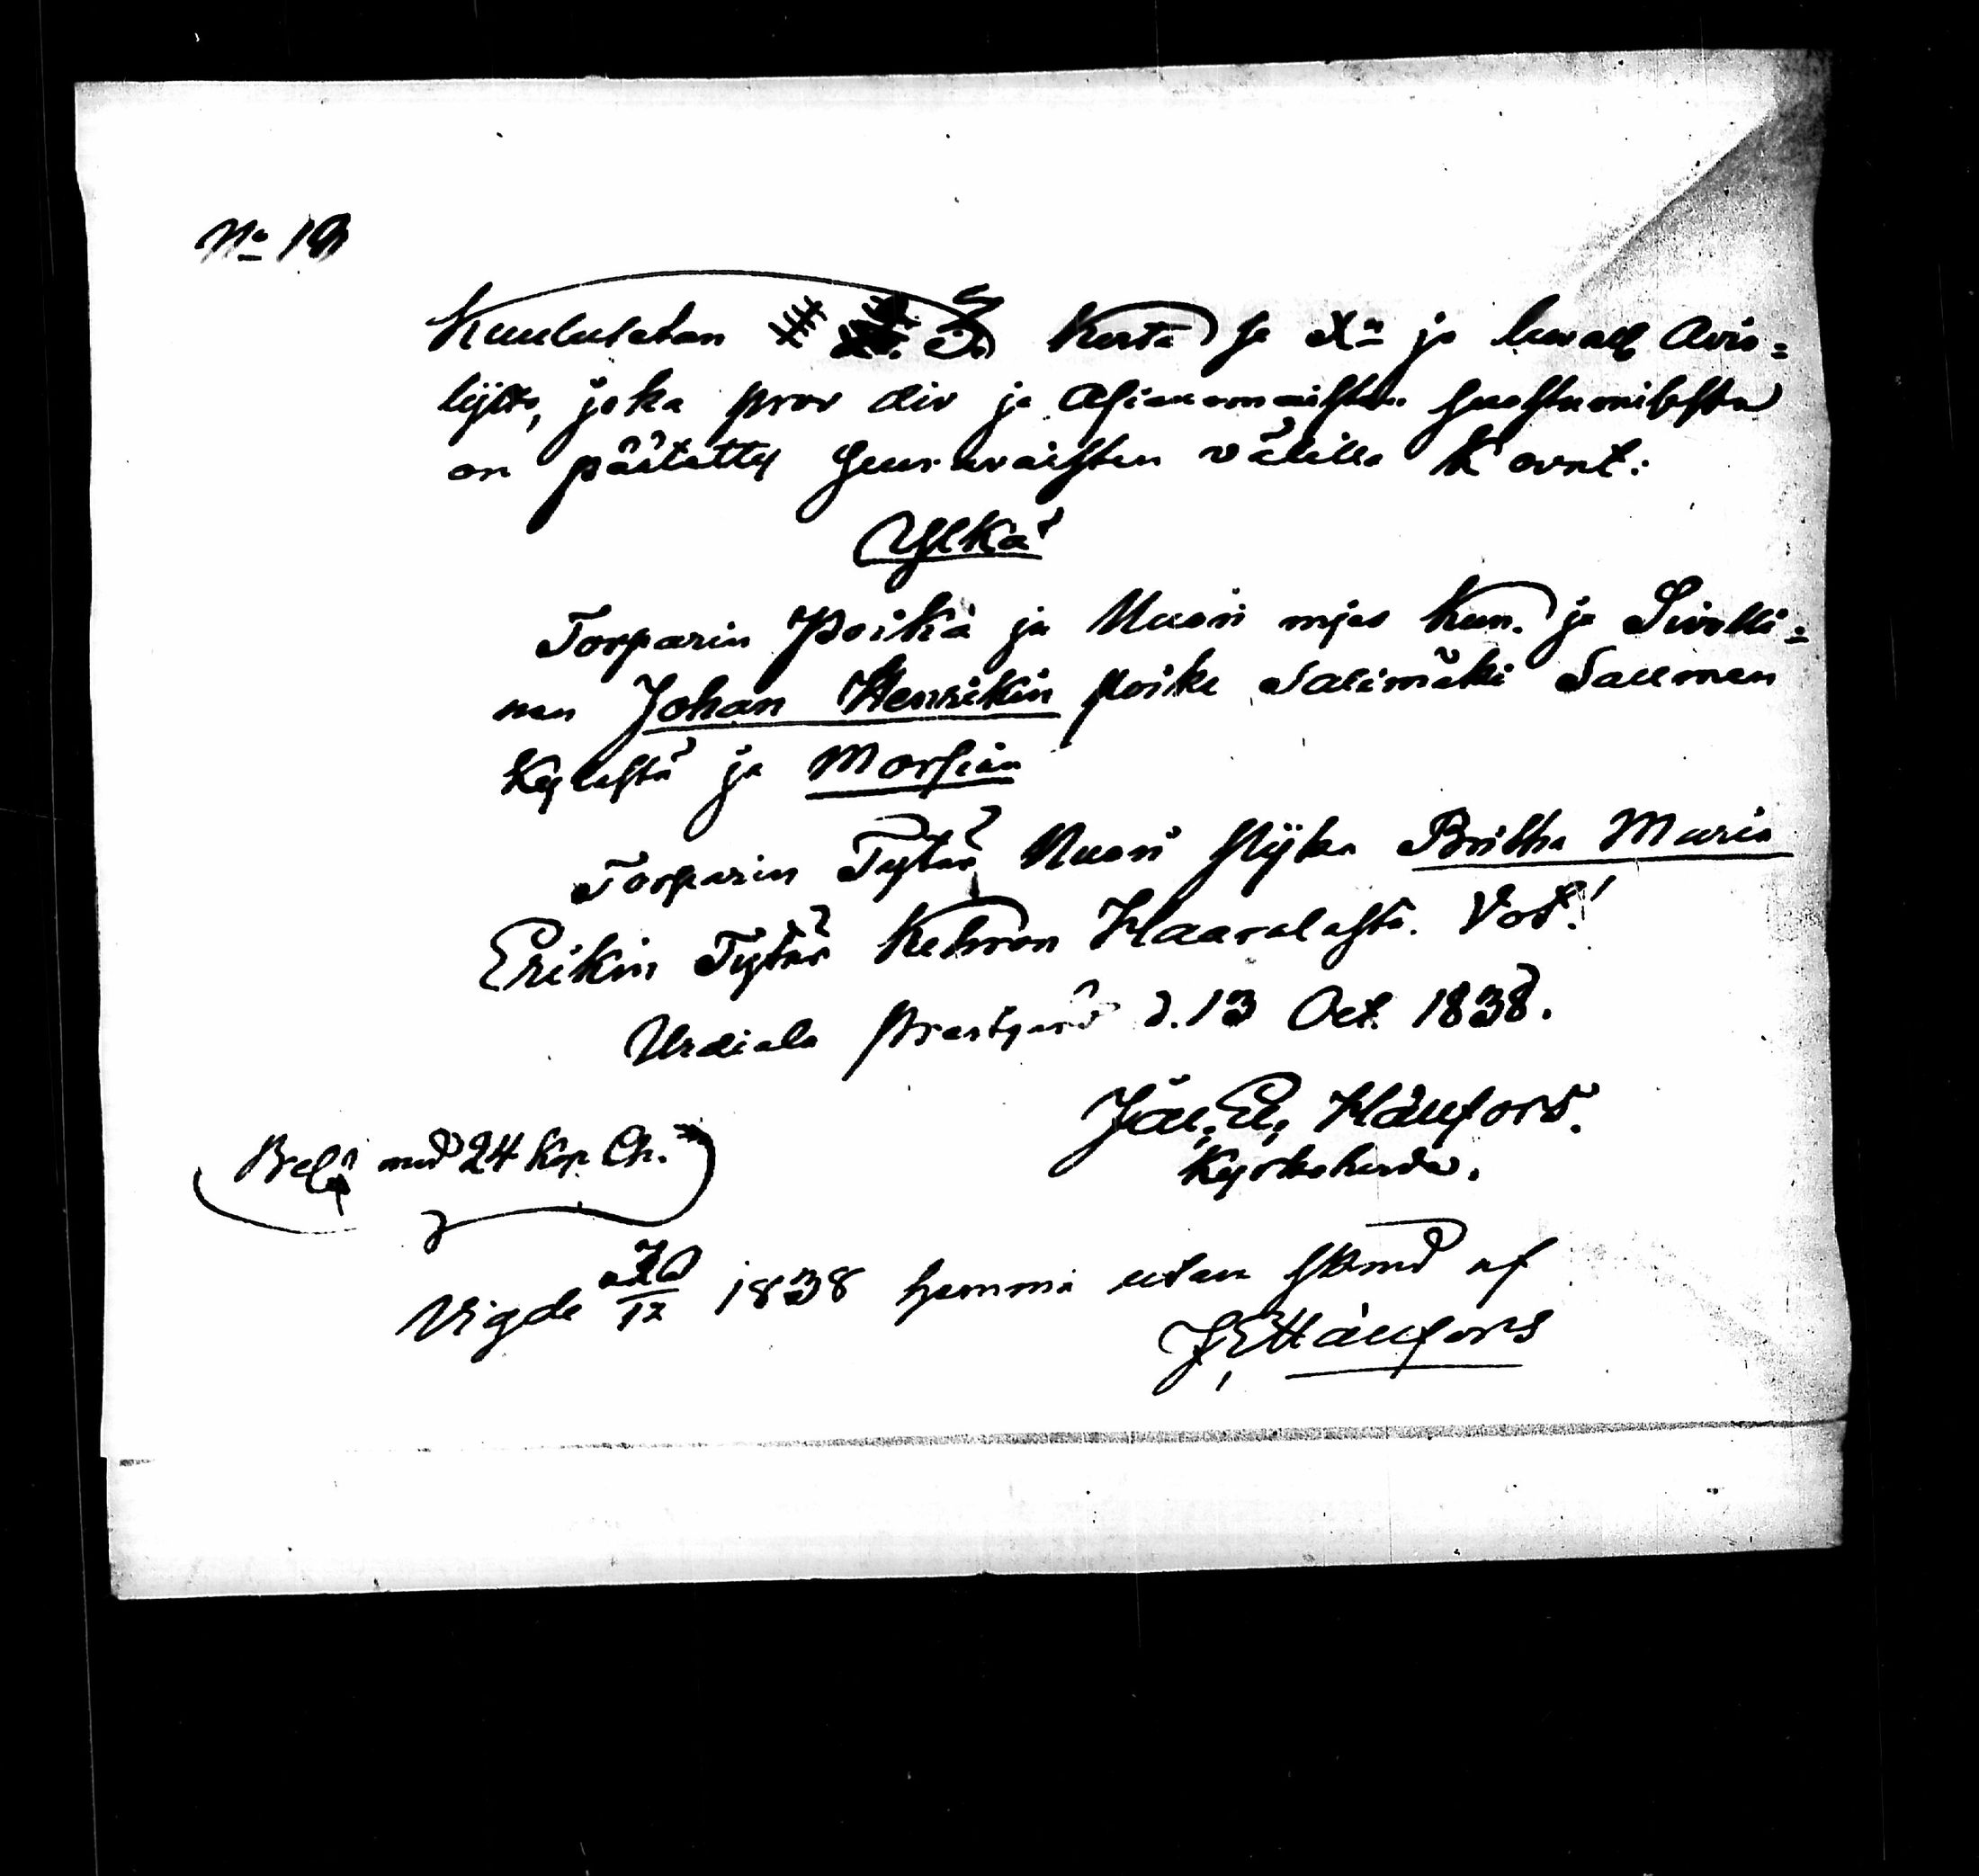 No 19
Kuulutetan 3. Kerta ja Xn ja luvall Avio=
lijtto, joka prov div ja asianomaisten suostumisesta
on päätetty seuravaisten välille K ovat:
Ylkä
Torparin Poika ja Nuori mjes Kun. ja Sivelli=
nen Johan Henrikin poika Salimäki Salmen
Kylästä ja Morsian
Torparin Tytär Nuori pijka Britha Maria
Erikin Tytär Kehron Haaralasta. Vot!
Urdiala Prestgård d. 13 Oct. 1838.
Joh. E. Hällfors.
Kyrkoherde.
Bel. med 24 Kop. Ch.
Vigde 26/12 1838 hemma utan stånd af
J E Hällfors